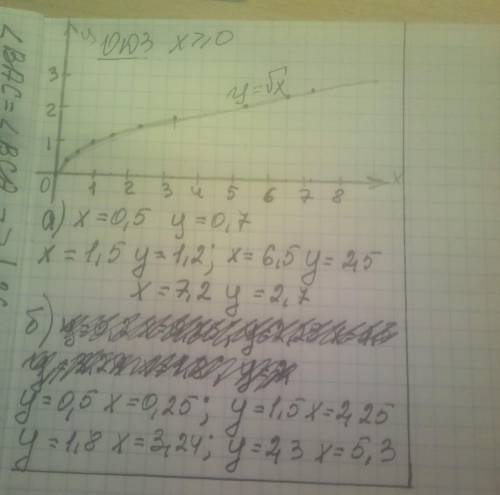 у
ОДЗ x≥0
3
2
1
y=√x
0 1 2 3 4 5 6 7 8 x
а) x=0,5 y=0,7
x=1,5 y=1,2; x=6,5 y=2,5
x=7,2 y=2,7
б)
y=0,5 x=0,25; y=1,5 x=2,25
y=1,8 x=3,24; y=2,3 x=5,3
∠BAC=∠BCA